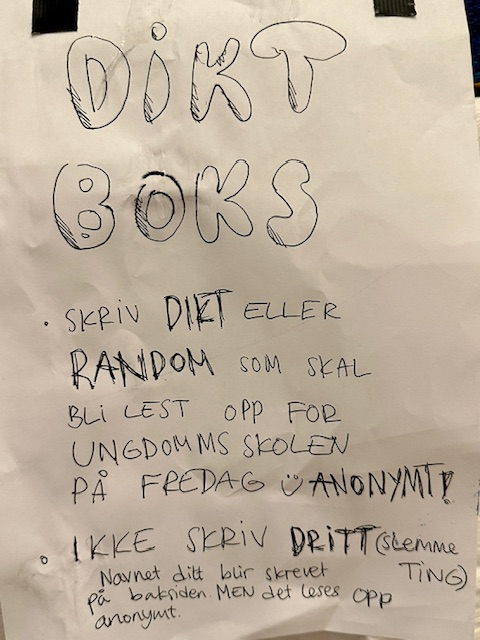 DiKT
BOKS
• SKRIV DIKT ELLER
RANDOM SOM SKAL
BLI LEST OPP FOR
UNGDOMMS SKOLEN
PÅ FREDAG ☺ ANONYMT!
• IKKE SKRIV DRITT (SLEMME
TING)
Navnet ditt blir skrevet
på baksiden. MEN det leses opp
anonymt.